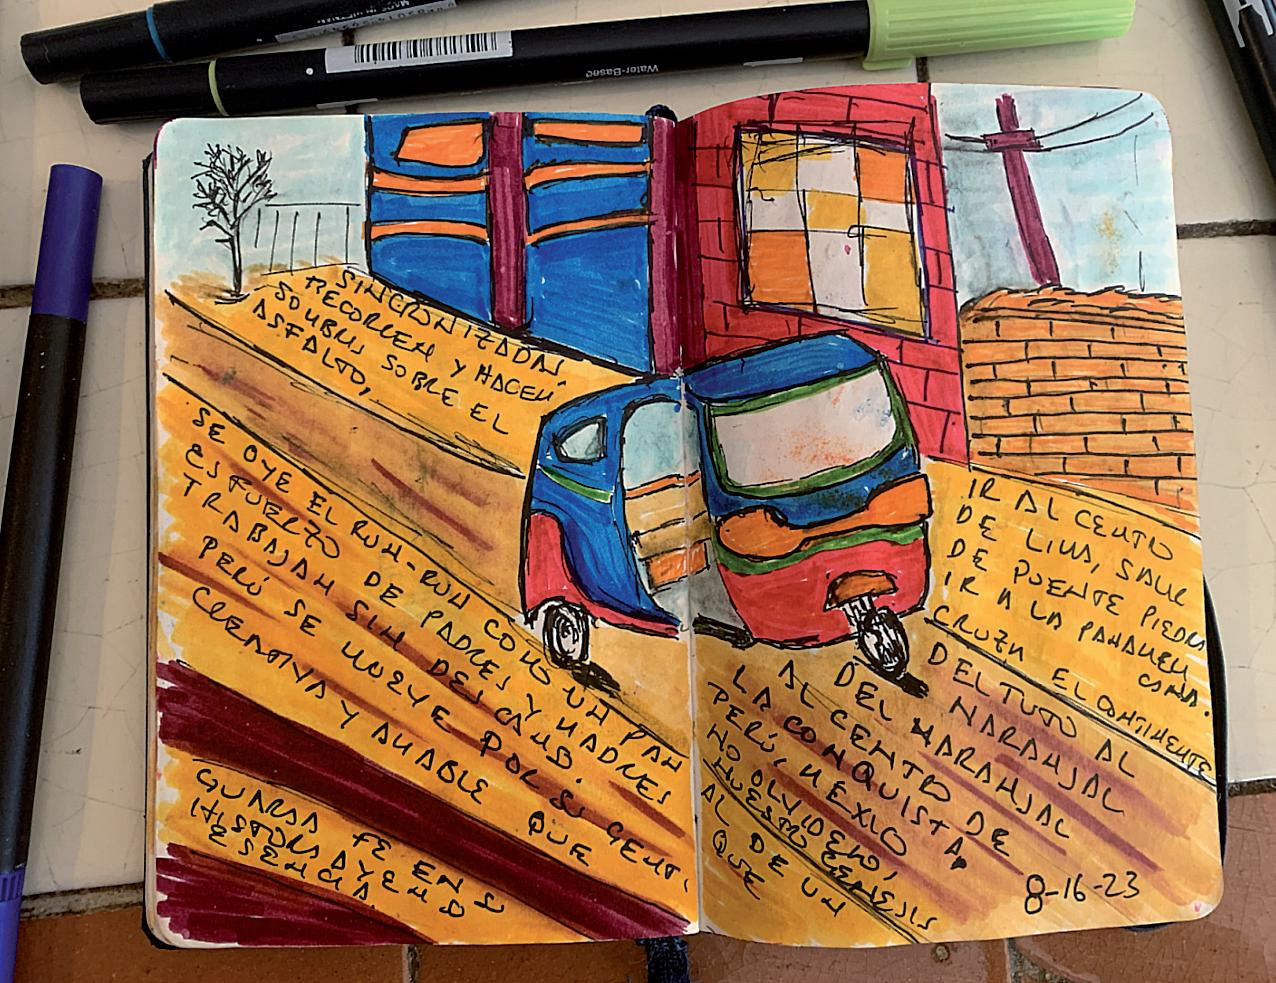 MADE IN VIETNAM
Water-Based
SINCRONIZADAS
RECORREN Y HACEN
SOBRE EL
ASFALTO,
SE OYE EL RUN-RUN COMO UN PAN
ESFUERZO DE PADRES Y MADRES
TRABAJAN SIN DESCANSO.
PERÚ SE MUEVE POR SU GENTE
CREATIVA Y AMABLE QUE
GUARDA FE EN S
HISTORIA Y EN S
ESENCIA.
IR AL CENTRO
DE LIMA, SALIR
DE PUENTE PIEDRA
IR A LA PANAMERI
CANA.
CRUZA EL CONTINENTE
DEL TUTO AL
NARANJAL
DEL NARANJAL
AL CENTRO DE
LA CONQUISTA
PERÚ, MEXICO
NO OLVIDEMO,
NUESTRO GENESIS
AL DE UN
QUE
8-16-23